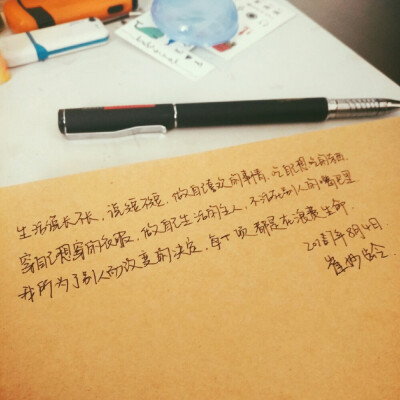 生活说长不长,说短不短,做自己喜欢的事情,吃自己想吃的东西,
穿自己想穿的衣服,做自己生活的主人,不活在别人的嘴巴里
我所为了别人而改变的决定,每一项都是在浪费生命.
8月4日.